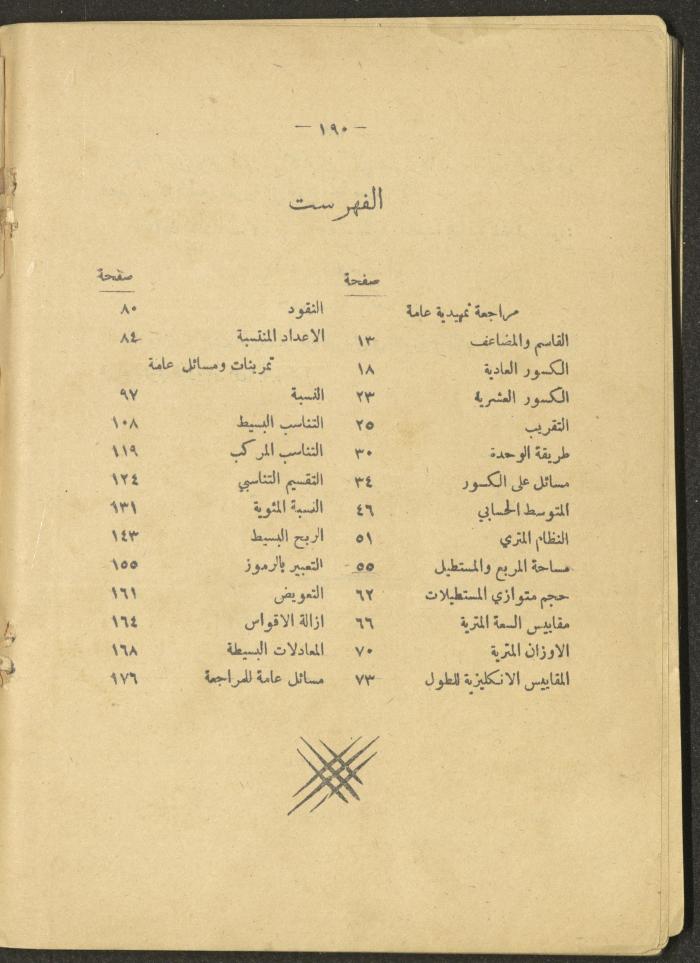 — ١٩٠ —
الفهرست
صفحة
مراجعة تمهيدية عامة
القاسم والمضاعف ١٣
الكسور العادية ١٨
الكسور العشرية ٢٣
التقريب ٢٥
طريقة الوحدة ٣٠
مسائل على الكسور ٣٤
المتوسط الحسابي ٤٦
النظام المتري ٥١
مساحة المربع والمستطيل ٥٥
حجم متوازي المستطيلات ٦٢
مقاييس السعة المترية ٦٦
الاوزان المترية ٧٠
المقاييس الانكليزية للطول ٧٣
صفحة
النقود ٨٠
الاعداد المنتسبة ٨٤
تمرينات ومسائل عامة
النسبة ٩٧
التناسب البسيط ١٠٨
التناسب المركب ١١٩
التقسيم التناسبي ١٢٤
النسبة المئوية ١٣١
الربح البسيط ١٤٣
التعبير بالرموز ١٥٥
التعويض ١٦١
ازالة الاقواس ١٦٤
المعادلات البسيطة ١٦٨
مسائل عامة للمراجعة ١٧٦